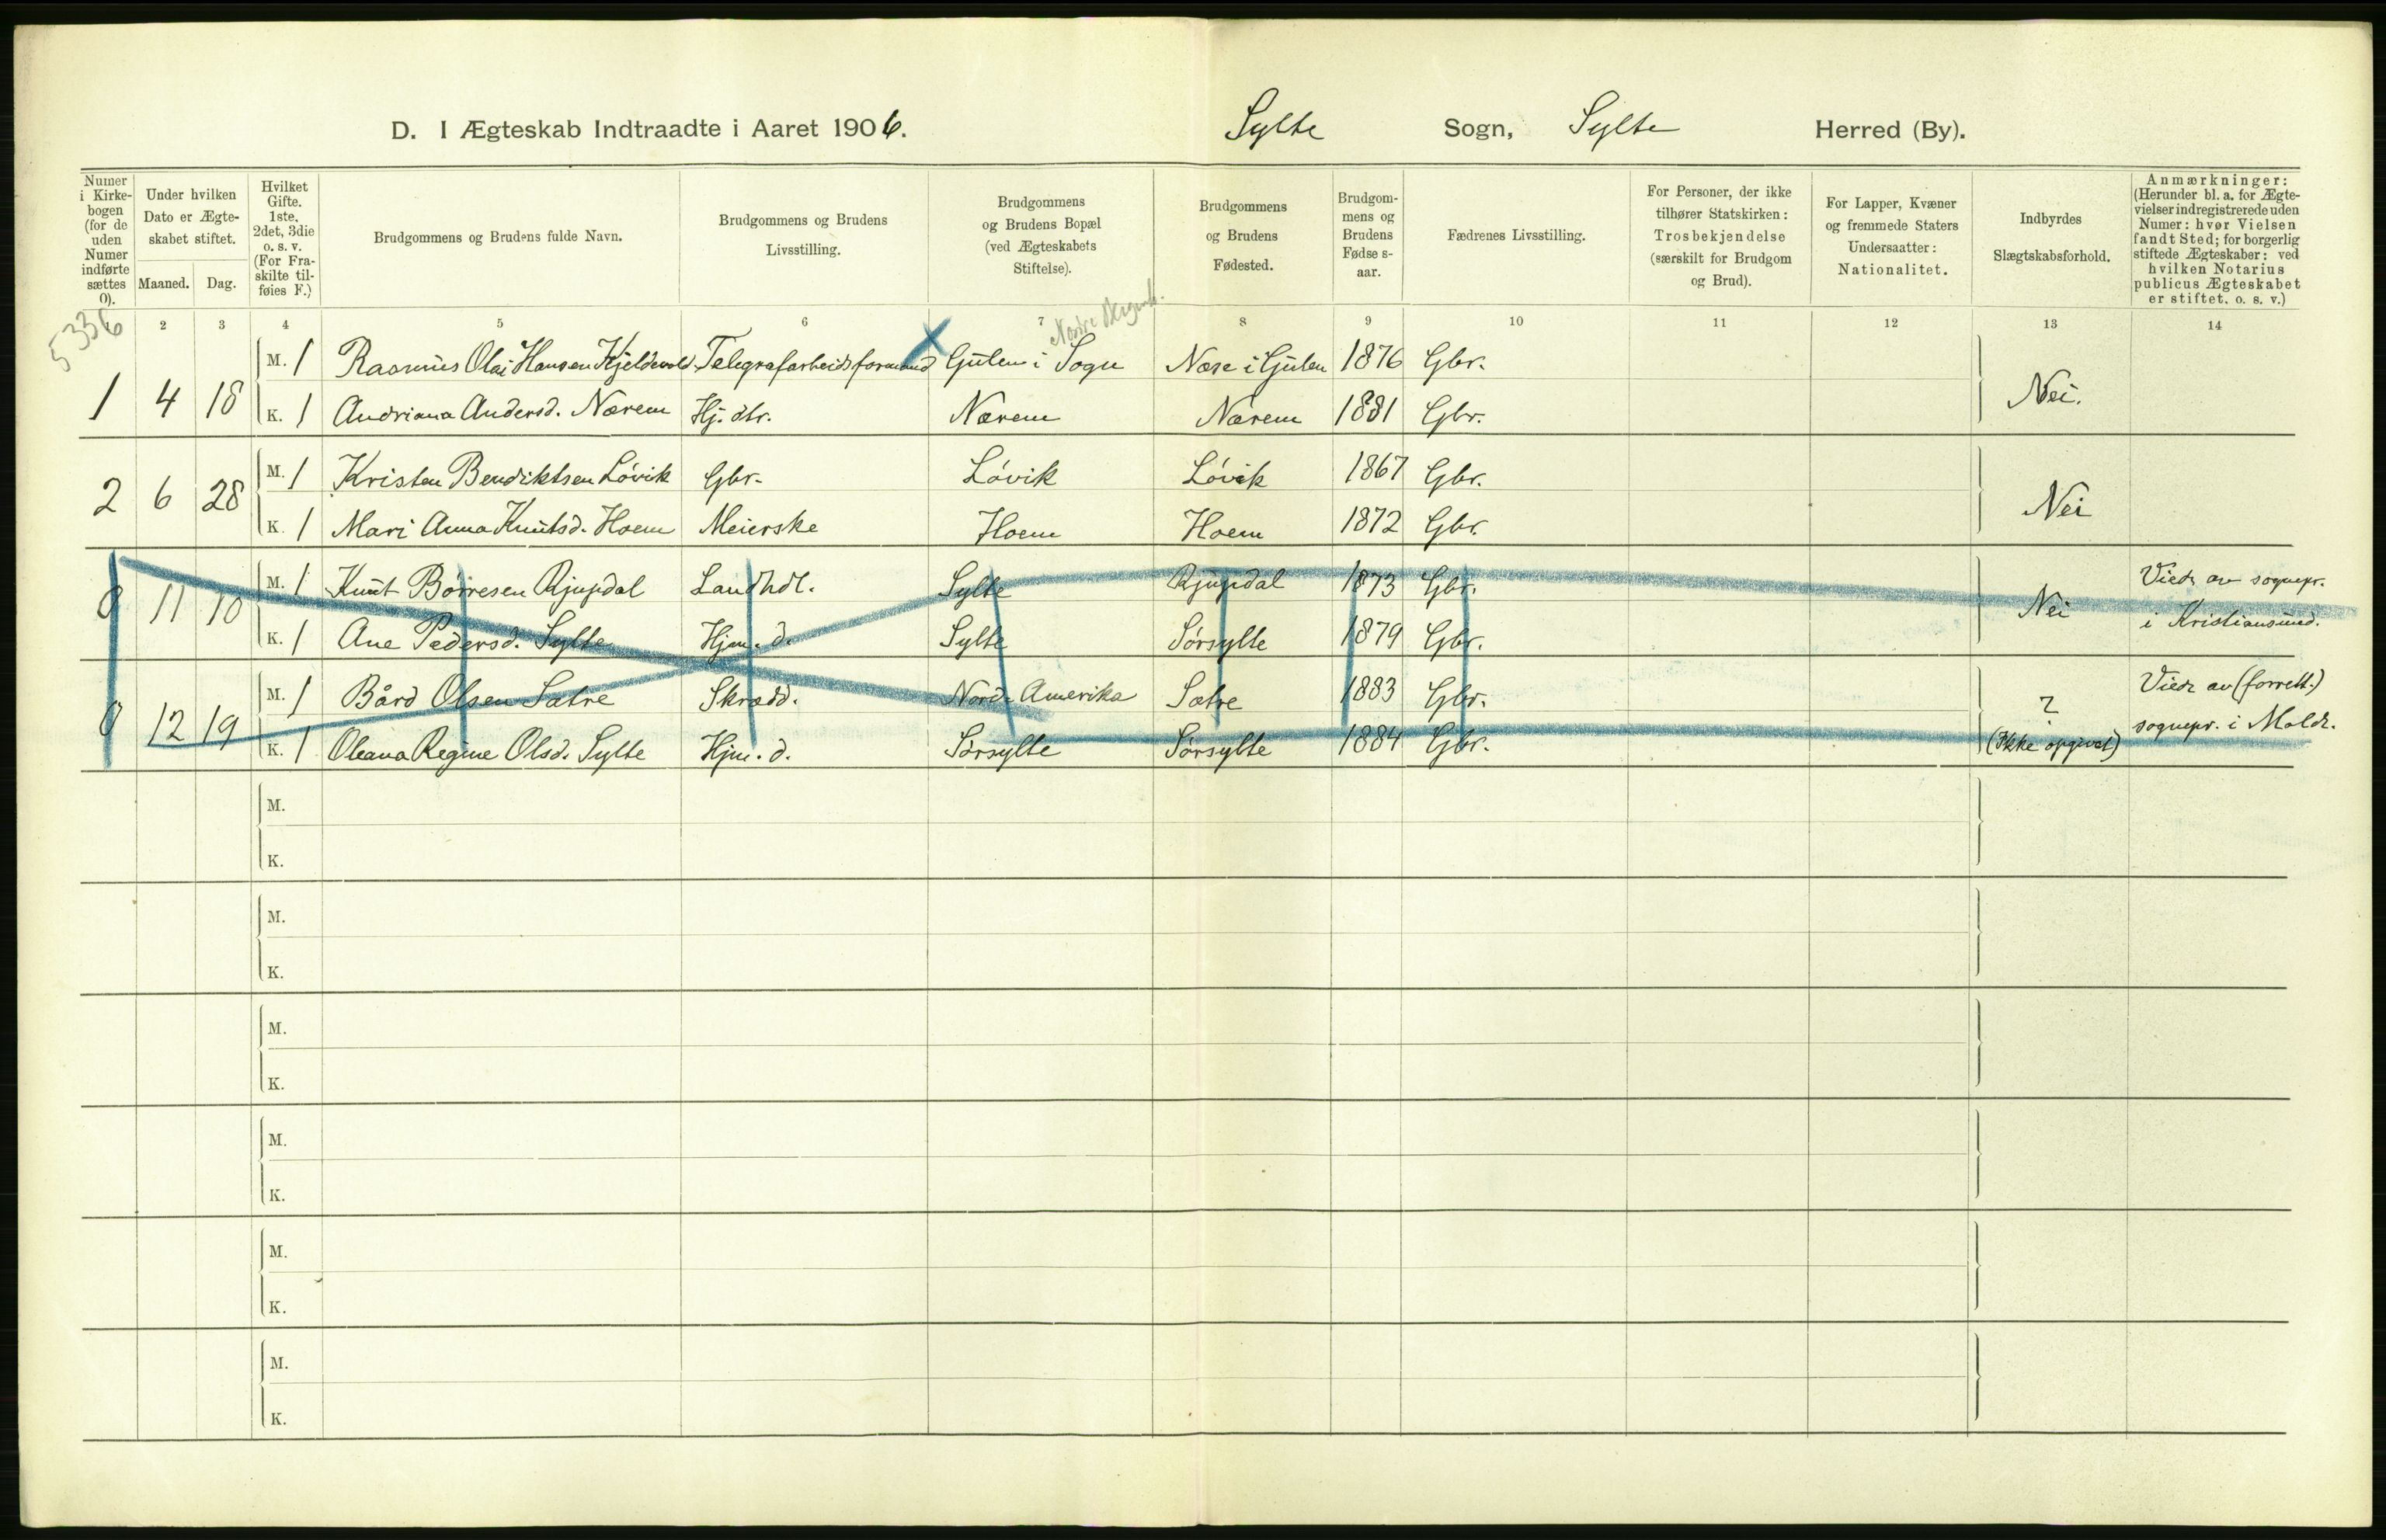 D. I Ægteskab Indtraadte i Aaret 1906. Sylte Sogn, Sylte Herred (By).
Numer i Kirke-bogen (for de uden Numer indførte sættes 0).
Under hvilken Dato er Ægte-skabet stiftet.
Maaned. Dag.
Hvilket Gifte. 1ste, 2det, 3die o. s. v. (For Fra-skilte til-føies F.)
Brudgommens og Brudens fulde Navn.
Brudgommens og Brudens Livsstilling.
Brudgommens og Brudens Bopæl (ved Ægteskabets Stiftelse).
Brudgommens og Brudens Fødested.
Brudgom-mens og Brudens Fødse s-aar.
Fædrenes Livsstilling.
For Personer, der ikke tilhører Statskirken: Trosbekjendelse (særskilt for Brudgom og Brud).
For Lapper, Kvæner og fremmede Staters Undersaatter: Nationalitet.
Indbyrdes Slægtskabsforhold.
Anmærkninger: (Herunder bl. a. for Ægte-vielser indregistrerede uden Numer: hvor Vielsen fandt Sted; for borgerlig stiftede Ægteskaber: ved hvilken Notarius publicus Ægteskabet er stiftet, o. s. v.)
5336
2 3 4 5 6 7 8 9 10 11 12 13 14
M. 1 Rasmus Olai Hansen Kjeldevold Telegrafarbeidsformand Gulen i Sogn Næse i Gulen 1876 Gbr.
1 4 18 Nei.
K. 1 Andriana Andersd. Nærem Hj. dtr. Nærem Nærem 1881 Gbr.
M. 1 Kristen Bendiktsen Løvik Gbr. Løvik Løvik 1867 Gbr.
2 6 28 Nei
K. 1 Mari Anna Knutsd. Hoem Meierske Hoem Hoem 1872 Gbr.
M. 1 Knut Børresen Rjupdal Landhdl. Sylte Rjupdal 1873 Gbr. Viede av sognepr.
0 11 10 Nei i Kristiansund.
K. 1 Ane Pedersd. Sylte Hjm. d. Sylte Sørsylte 1879 Gbr.
M. 1 Bård Olsen Sætre Skrædd. Nord-Amerika Sætre 1883 Gbr. ? Viede av (forrett.)
0 12 19 sognepr. i Molde.
K. 1 Oleana Regine Olsd. Sylte Hjm. d. Sørsylte Sørsylte 1884 Gbr. (Ikke opgivet)
M.
K.
M.
K.
M.
K.
M.
K.
M.
K.
M.
K.